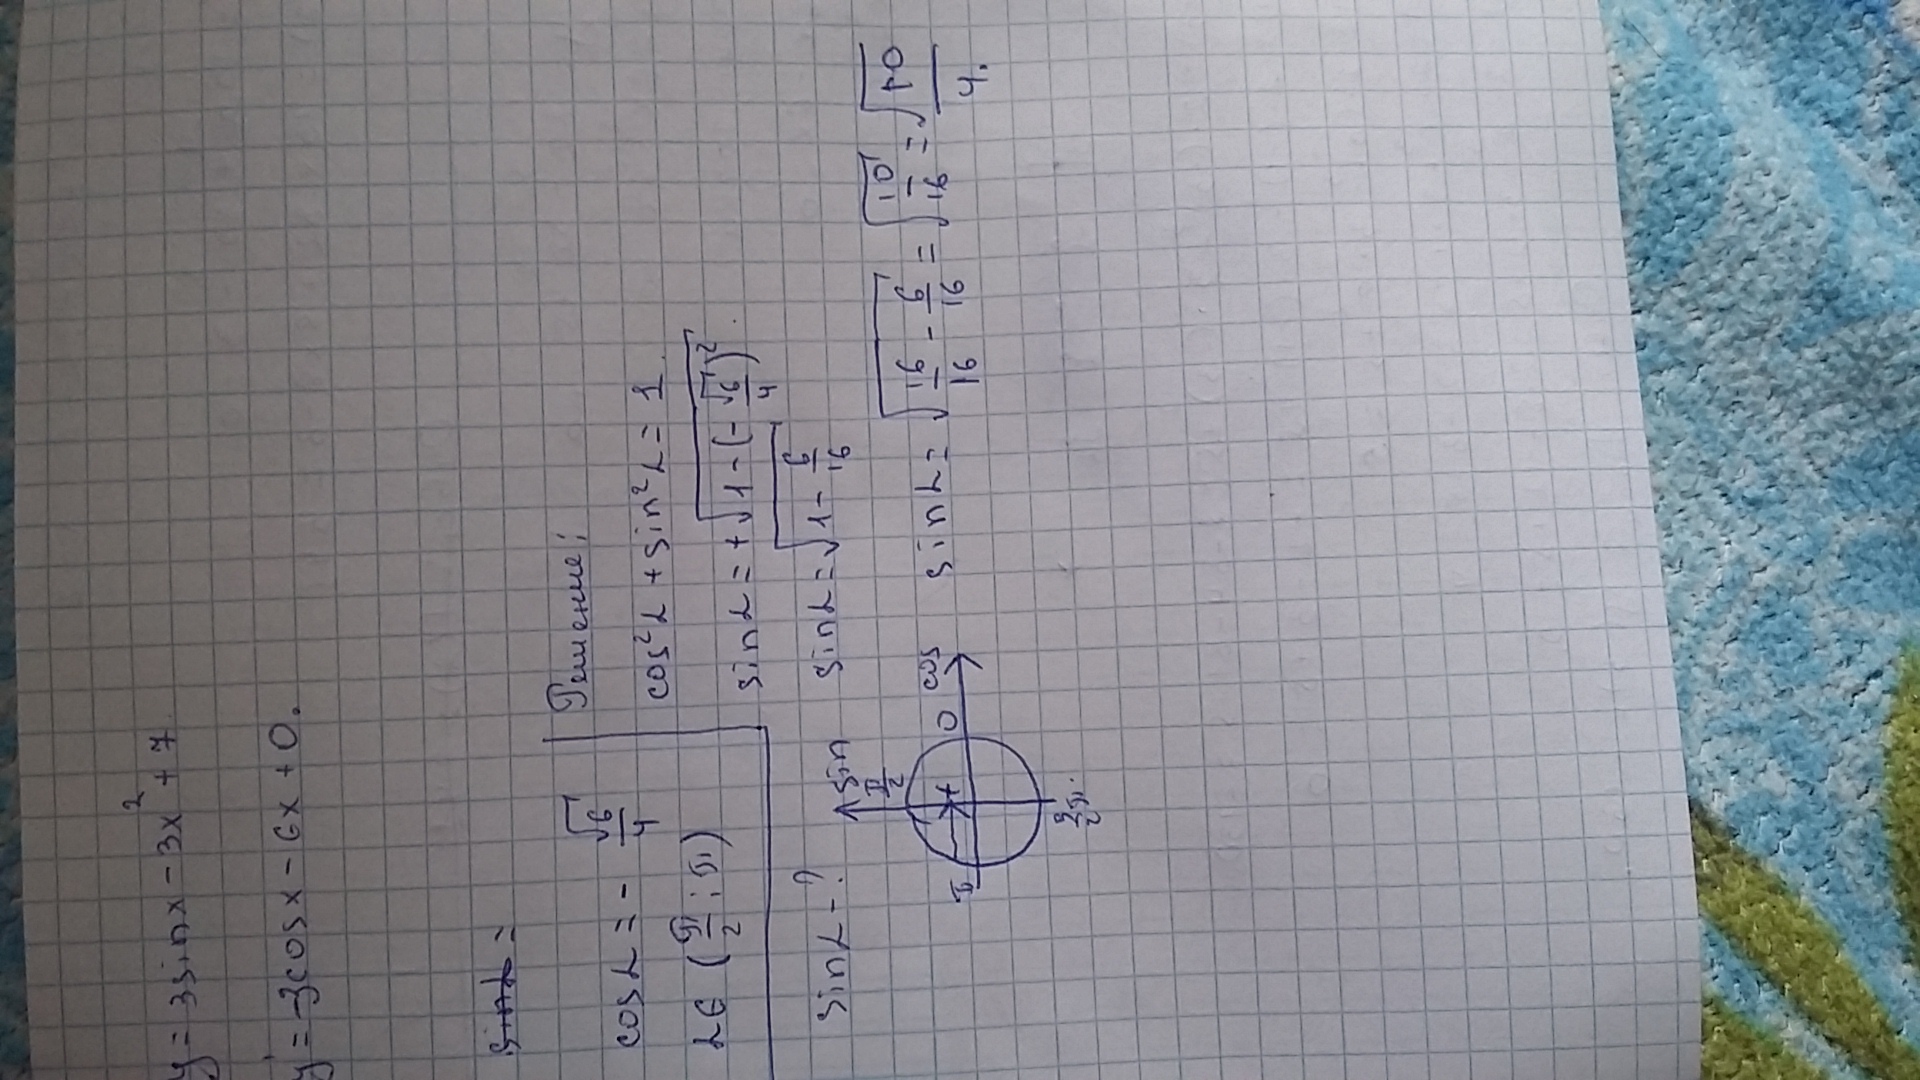 y = 3sinx - 3x² + 7
y' = -3cosx - 6x + 0.
sinα =
cosα = - √6/4
α∈ (π/2 ; π)
sinα - ?
Решение:
cos²α + sin²α = 1
sinα = +√(1 - (-√6/4)²)
sinα = √(1 - 6/16)
sinα = √(16/16 - 6/16) = √(10/16) = √10/4.
sin
π/2
π
+
0
cos
3π/2